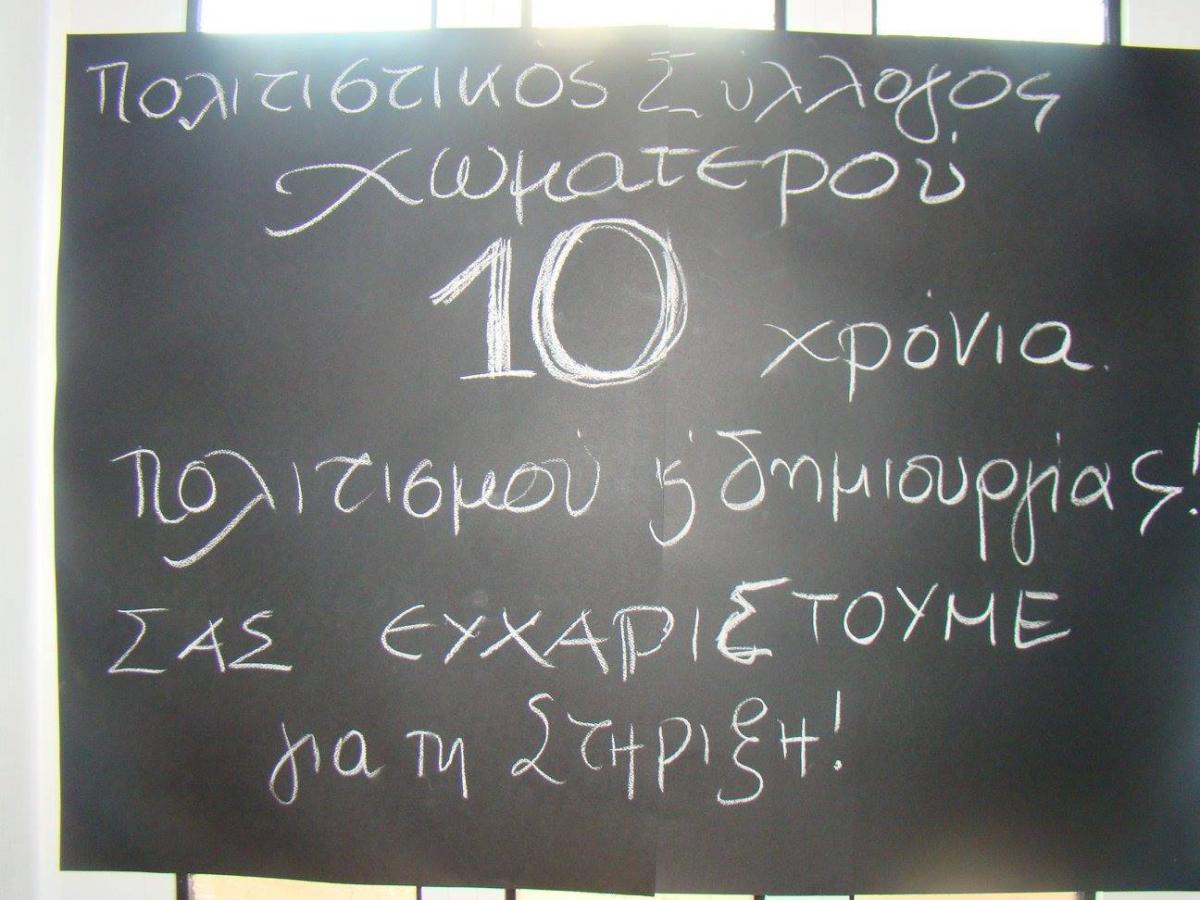 Πολιτιστικός Σύλλογος
Χωματερού
10 χρόνια
πολιτισμού ϗ δημιουργίας!
ΣΑΣ ΕΥΧΑΡΙΣΤΟΥΜΕ
για τη ΣτΗριξΗ!